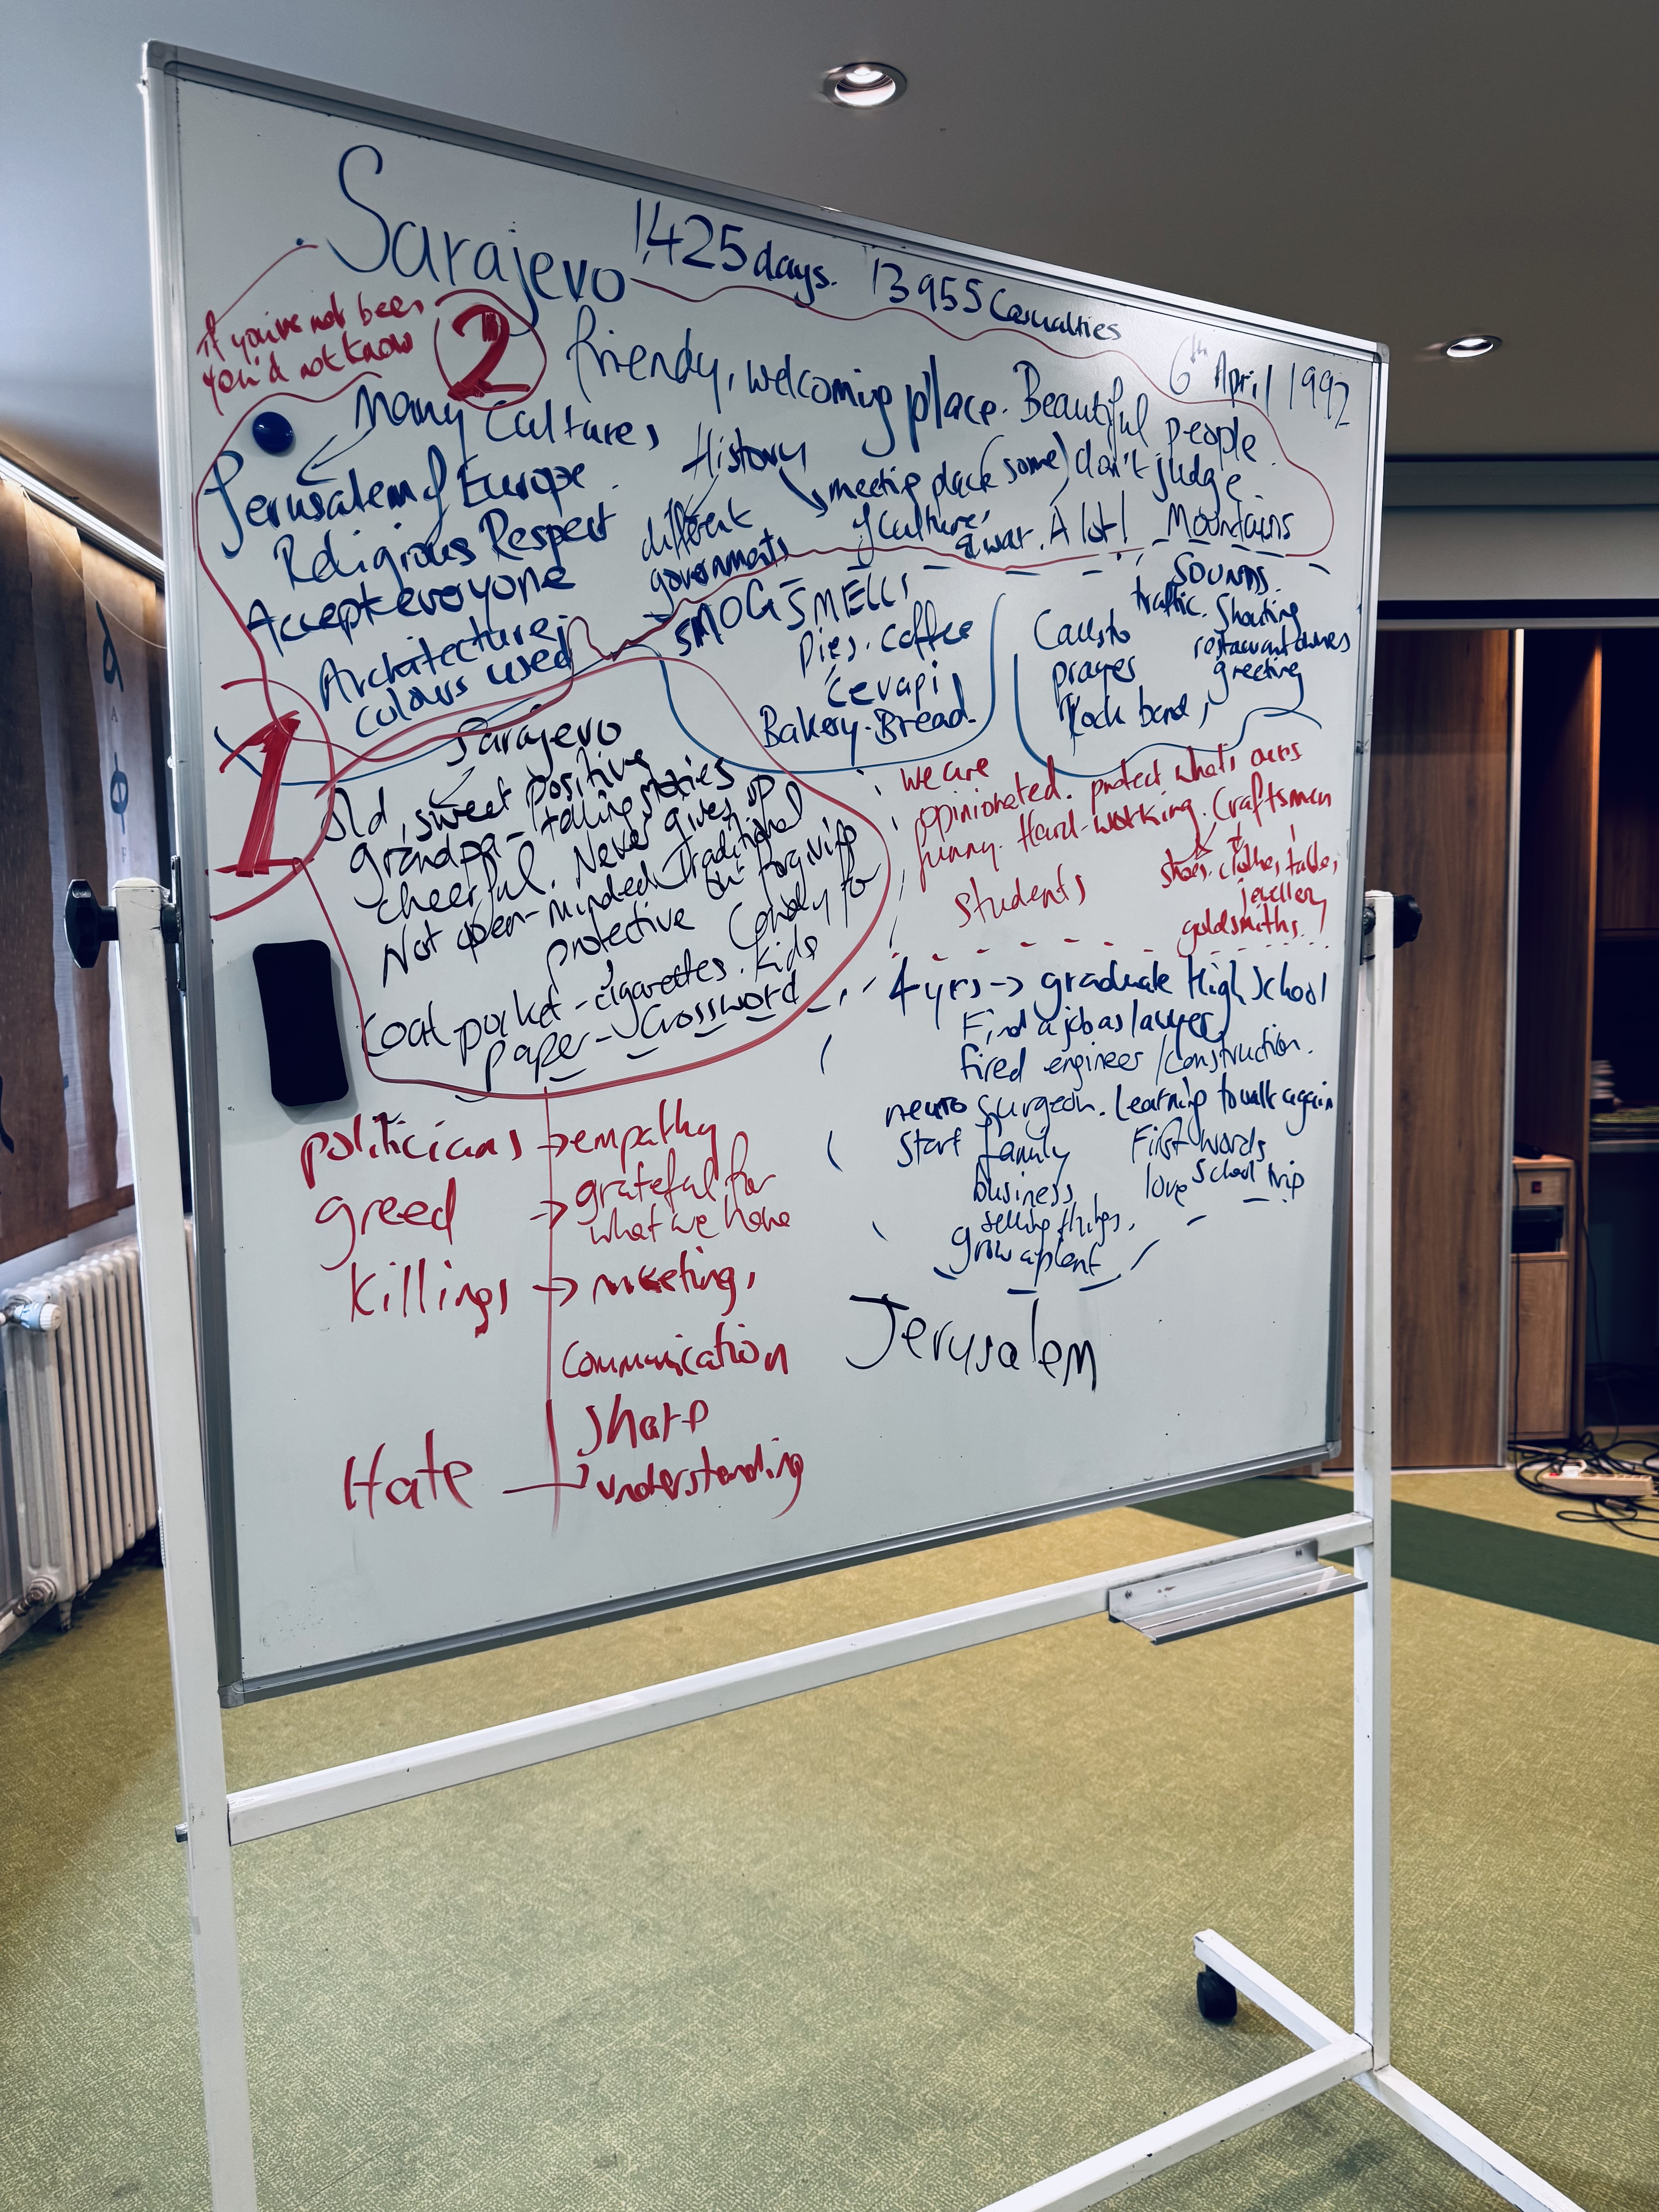 Sarajevo 1,425 days. 13955 Casualties
6th April 1992
If you've not been
you'd not know
2
friendy, welcoming place. Beautiful people.
Many Cultures
Jerusalem of Europe.
Religious Respect
Accept everyone
Architecture;
colours used
History
different
governments
meeting place (some) don't judge
of cultures
& war. A lot!
Mountains
SMOG SMELLS
Pies. coffee
Cevapi
Bakery. Bread.
SOUNDS.
traffic. Shouting
restaurant owners
greeting
Call to
prayer
Rock band,
1
Sarajevo
Old, sweet positive
grandpa - telling stories
cheerful. Never gives up
Not open-minded. Traditional
protective but forgiving
Coat pocket - cigarettes. Candy for kids
paper - Crossword
we are
opinionated. protect what's ours
funny. Hard-working. Craftsman
Students
shoes. clothes, tables,
jewellery
goldsmiths.
4 yrs → graduate High School
Find a job as lawyer,
fired engineer / construction.
neuro surgeon. Learning to walk again
Start family
First words
business
love School trip
selling things.
grow a plant
politicians → empathy
greed → grateful for
what we have
Killings → meeting,
communication
share
Hate → understanding
Jerusalem